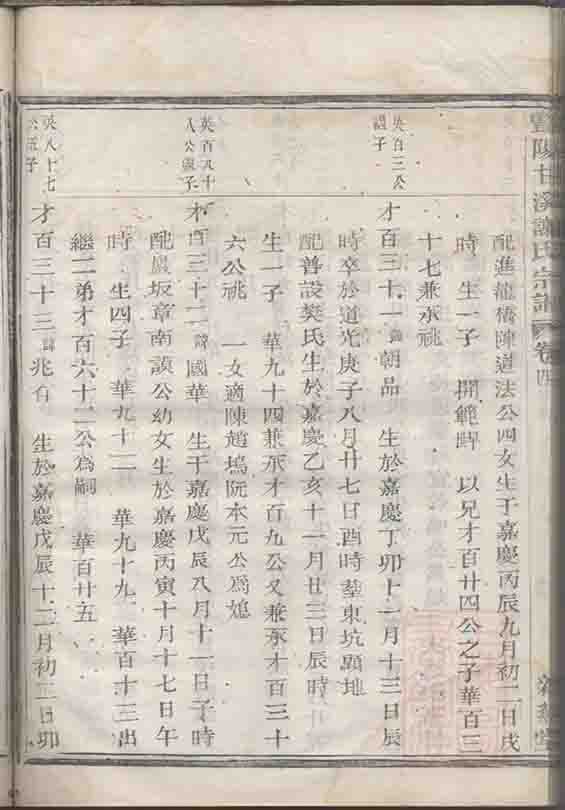 陽甘溪謝氏宗譜 卷四
配進龍橋陳道法公四女生于嘉慶丙辰九月初二日戌
時 生一子 開範 以兄才百廿四公之子華百三
十七兼承祧
英百三公
子
才百三十一 諱朝品 生於嘉慶丁卯十一月十三日辰
時卒於道光庚子八月廿七日酉時葬東坑頭地
配善設樊氏生於嘉慶乙亥十一月廿三日辰時
生一子 華九十四兼承才百九公又兼承才百三十
六公祧 一女適陳趙塢阮本元公爲媳
英百八十
八公子
才百三十二 諱國華 生于嘉慶戊辰八月十一日子時
配嚴坂章南謨公幼女生於嘉慶丙寅十月十七日午
時 生四子 華九十二 華九十九 華百十三出
繼二弟才百六十二公爲嗣 華百廿五
英八十七
公子
才百三十三 諱兆有 生於嘉慶戊辰十二月初二日卯